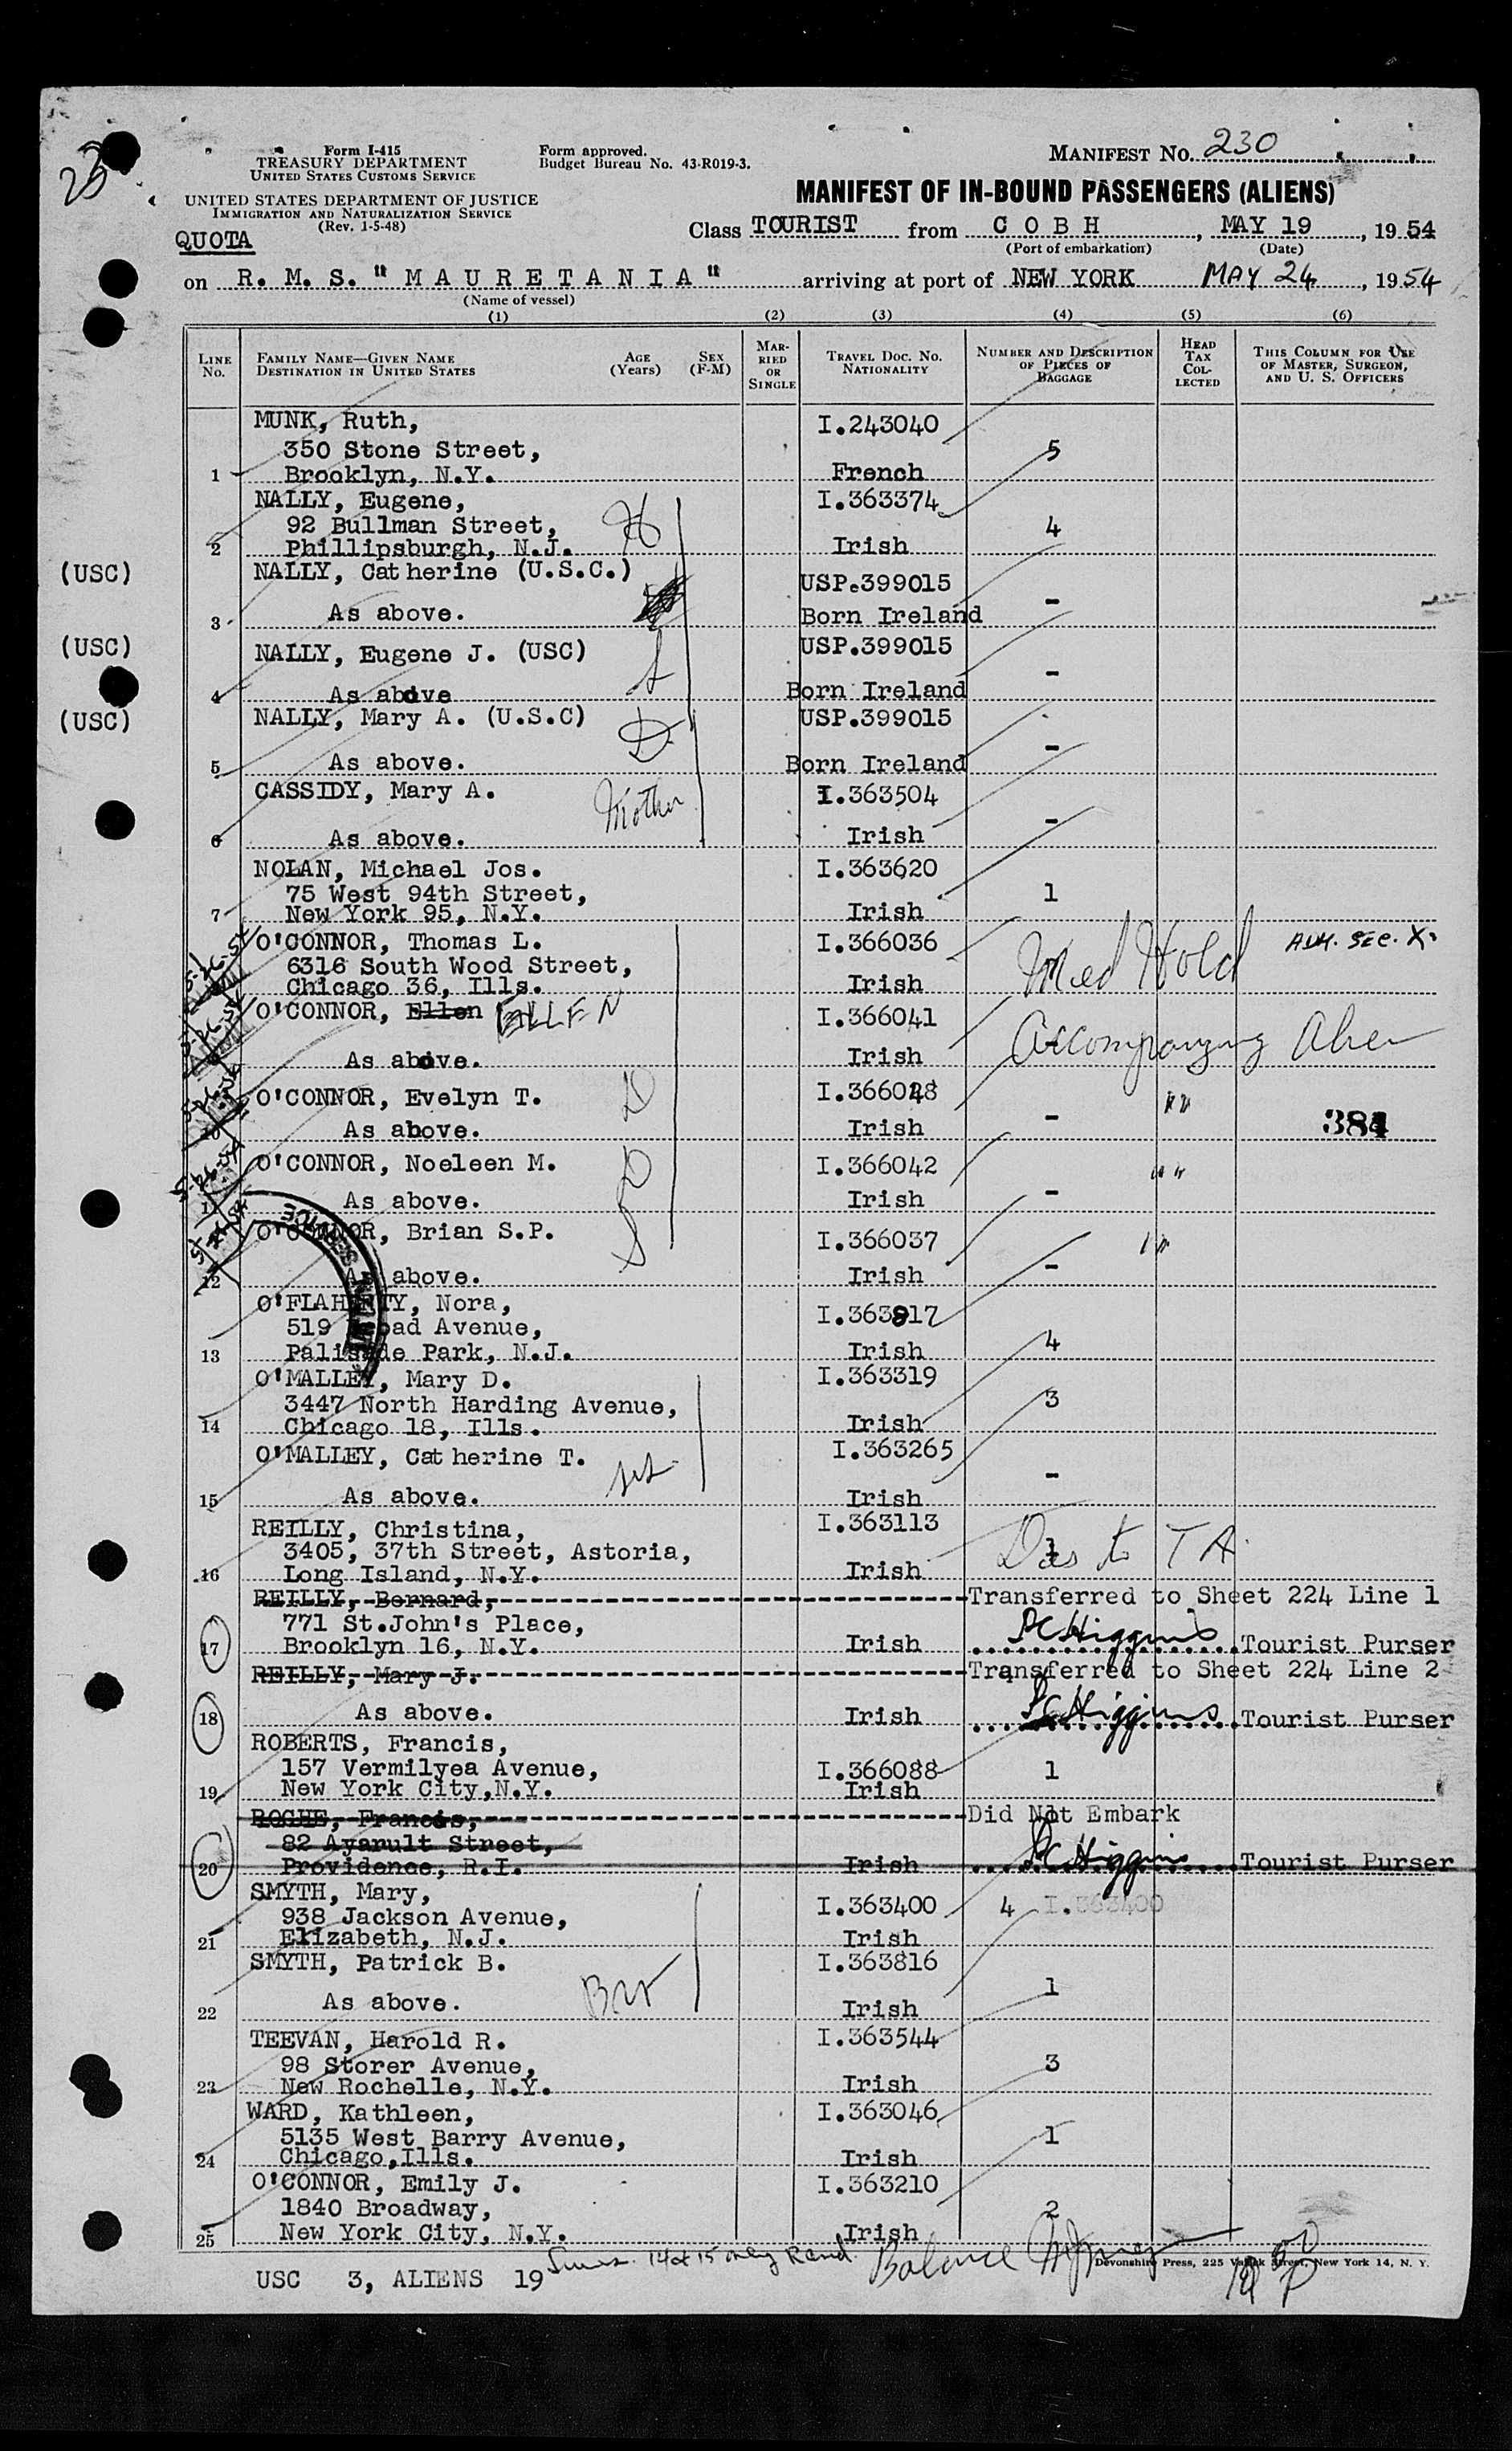 23
Form I-415
TREASURY DEPARTMENT
UNITED STATES CUSTOMS SERVICE
UNITED STATES DEPARTMENT OF JUSTICE
IMMIGRATION AND NATURALIZATION SERVICE
(Rev. 1-5-48)
QUOTA
Form approved.
Budget Bureau No. 43-R019-3.
MANIFEST NO. 230
MANIFEST OF IN-BOUND PASSENGERS (ALIENS)
Class TOURIST from C O B H, MAY 19, 1954
(Port of embarkation) (Date)
on R. M. S. "M A U R E T A N I A" arriving at port of NEW YORK MAY 24, 1954
(Name of vessel)
(1) (2) (3) (4) (5) (6)
LINE NO.
FAMILY NAME—GIVEN NAME
DESTINATION IN UNITED STATES
AGE (Years)
SEX (F-M)
MARRIED OR SINGLE
TRAVEL DOC. NO. NATIONALITY
NUMBER AND DESCRIPTION OF PIECES OF BAGGAGE
HEAD TAX COLLECTED
THIS COLUMN FOR USE OF MASTER, SURGEON, AND U. S. OFFICERS
MUNK, Ruth, I.243040
350 Stone Street, 5
1 Brooklyn, N.Y. French
NALLY, Eugene, I.363374
92 Bullman Street, H 4
2 Phillipsburgh, N.J. Irish
(USC) NALLY, Catherine (U.S.C.) USP.399015
3 As above. Born Ireland -
(USC) NALLY, Eugene J. (USC) USP.399015
4 As above Born Ireland -
(USC) NALLY, Mary A. (U.S.C) D USP.399015
5 As above. Born Ireland -
CASSIDY, Mary A. Mother I.363504
6 As above. Irish -
NOLAN, Michael Jos. I.363620
75 West 94th Street, 1
7 New York 95, N.Y. Irish
O'CONNOR, Thomas L. I.366036 Med Hold ADM. SEC.
5-26-54 6316 South Wood Street,
Chicago 36, Ills. Irish
O'CONNOR, Ellen ELLEN I.366041 Accompanying Alien
5-26-54 As above. Irish
O'CONNOR, Evelyn T. D I.366028 " "
5-26-54 10 As above. Irish - 384
O'CONNOR, Noeleen M. D I.366042 " "
5-26-54 11 As above. Irish -
O'CONNOR, Brian S.P. S I.366037 " "
12 As above. Irish -
O'FLAHERTY, Nora, I.363817
519 Broad Avenue, 4
13 Palisade Park, N.J. Irish
O'MALLEY, Mary D. I.363319
3447 North Harding Avenue, 3
14 Chicago 18, Ills. Irish
O'MALLEY, Catherine T. sis I.363265
15 As above. Irish -
REILLY, Christina, I.363113
3405, 37th Street, Astoria, 1 Des to T A
16 Long Island, N.Y. Irish
REILLY, Bernard, Transferred to Sheet 224 Line 1
771 St.John's Place,
17 Brooklyn 16, N.Y. Irish PC Higgins Tourist Purser
REILLY, Mary J. Transferred to Sheet 224 Line 2
18 As above. Irish PC Higgins Tourist Purser
ROBERTS, Francis,
157 Vermilyea Avenue, I.366088 1
19 New York City,N.Y. Irish
ROCHE, Francis, Did Not Embark
82 Ayanult Street,
20 Providence, R.I. Irish PC Higgins Tourist Purser
SMYTH, Mary, I.363400 4 I.363400
938 Jackson Avenue,
21 Elizabeth, N.J. Irish
SMYTH, Patrick B. Bro I.363816
22 As above. Irish 1
TEEVAN, Harold R. I.363544
98 Storer Avenue, 3
23 New Rochelle, N.Y. Irish
WARD, Kathleen, I.363046
5135 West Barry Avenue, 1
24 Chicago,Ills. Irish
O'CONNOR, Emily J. I.363210
1840 Broadway, 2
25 New York City, N.Y. Irish
14 & 15 only Balance
Devonshire Press, 225 Varick Street, New York 14, N. Y.
USC 3, ALIENS 19